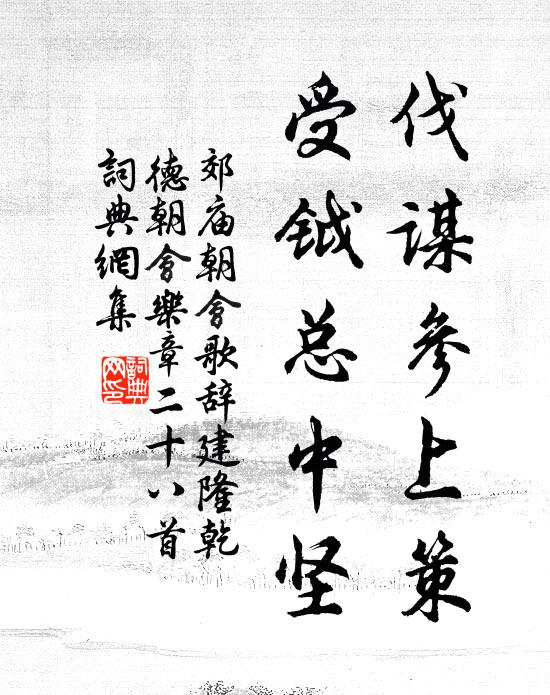 伐谋参上策
受钺总中坚
郊庙朝会歌辞建隆乾
德朝会樂章二十八首
詞典網集
詞典网印